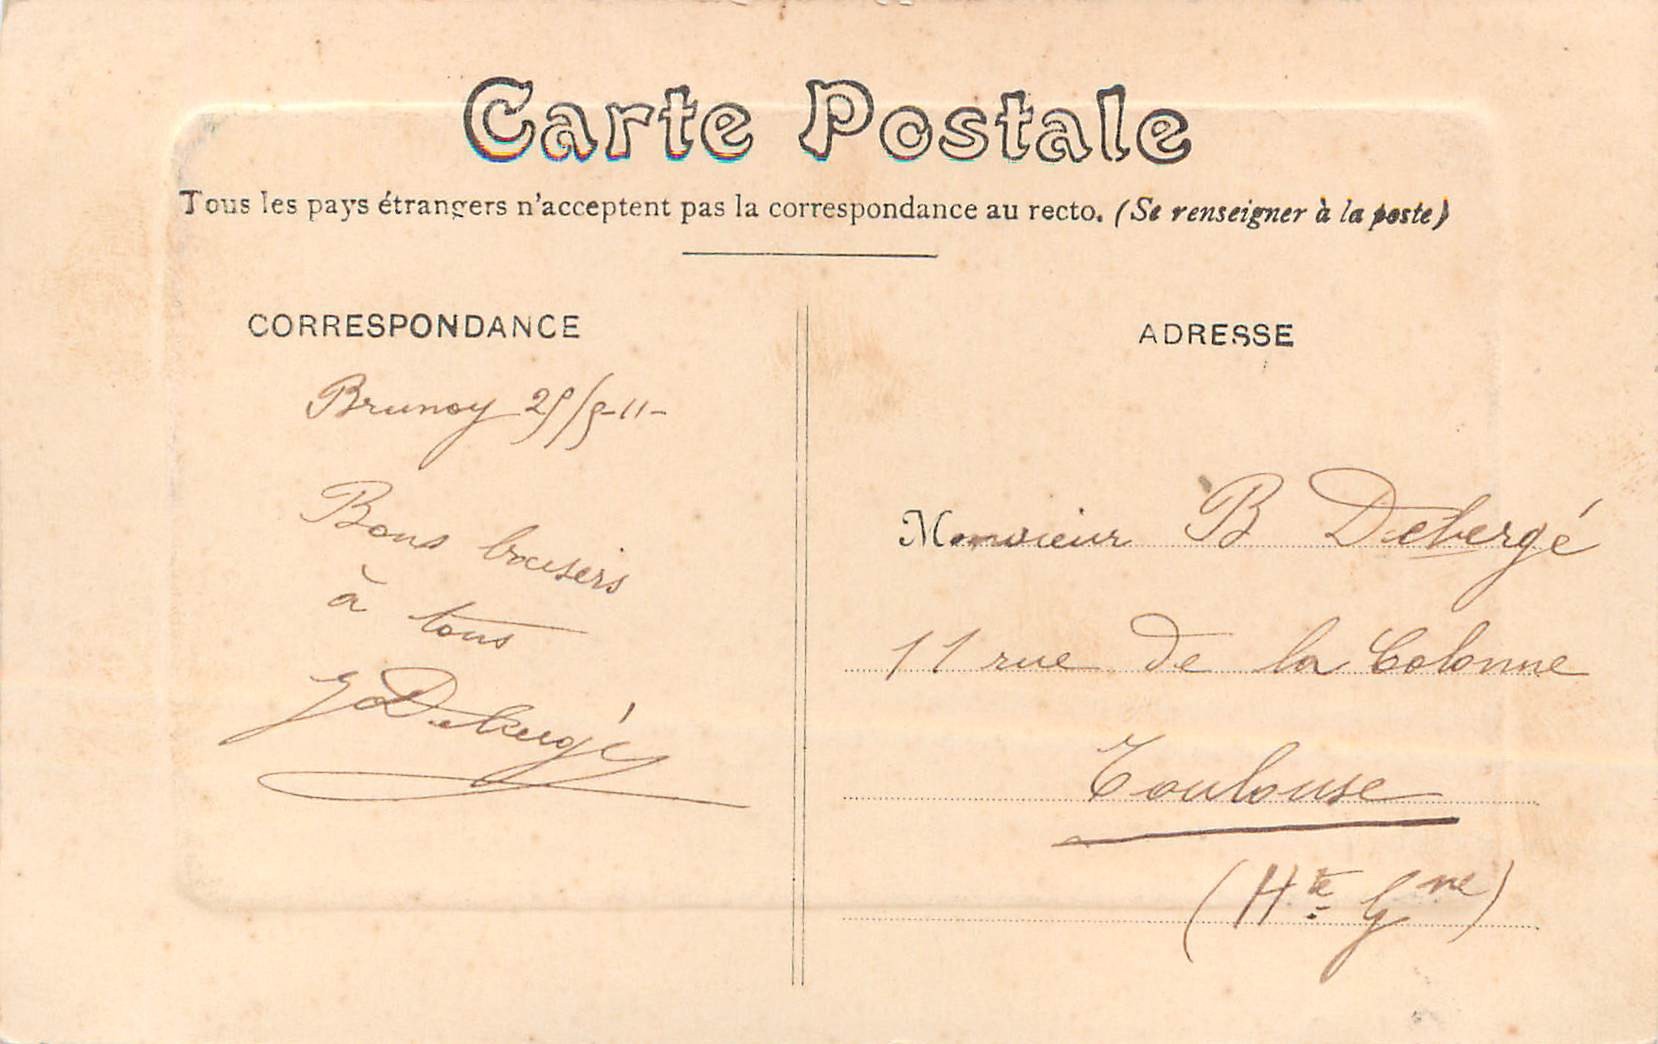 Carte Postale
Tous les pays étrangers n'acceptent pas la correspondance au recto. (Se renseigner à la poste)
CORRESPONDANCE
ADRESSE
Brunoy 25/5-11-
Bons baisers
à tous
Debergé
Monsieur B Debergé
11 rue de la Colonne
Toulouse
(Hte Gne)